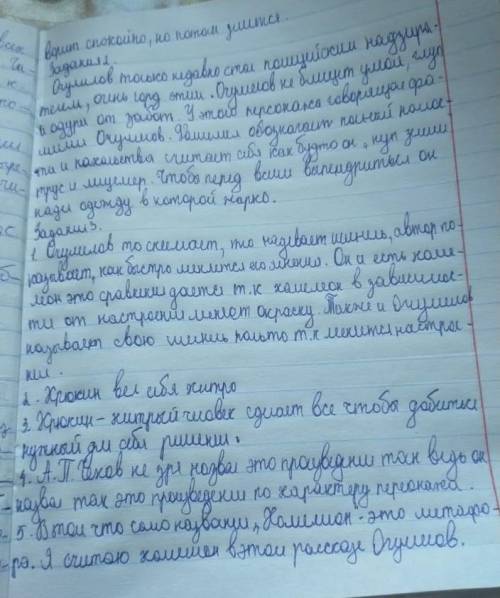 ворит спокойно, но потом злится.
Задание 2.
Очумелов только недавно стал полицейским надзира-
телем, очень горд этим. Очумелов не блещет умом, глуп
и одури от забот. У этого персонажа говорящая фа-
милия Очумелов. Фамилия обозначает полней налос-
ти и нахальства считает себя как будто он, пуп земли
трус и лицемер. Чтобы перед всеми выпендриться он
надел одежду в которой жарко.
Задание 3.
1. Очумелов то снимает, то надевает шинель, автор по-
казывает, как быстро меняется его мнение. Он и есть хаме-
леон это сравнение дается т.к хамелеон в зависимос-
ти от настроения меняет окраску. Также и Очумелов
называет свою шинель пальто т.к меняется настрое-
ние.
2. Хрюкин вел себя хитро
3. Хрюкин - хитрый человек сделает все чтобы добиться
нужный для себя решения.
4. А.П. Чехов не зря назвал это произведение так ведь он
назвал так это произведение по характеру персонажа.
5. В том что само название, Хамелеон - это метафо-
ра. Я считаю хамелеон в этом рассказе Очумелов.